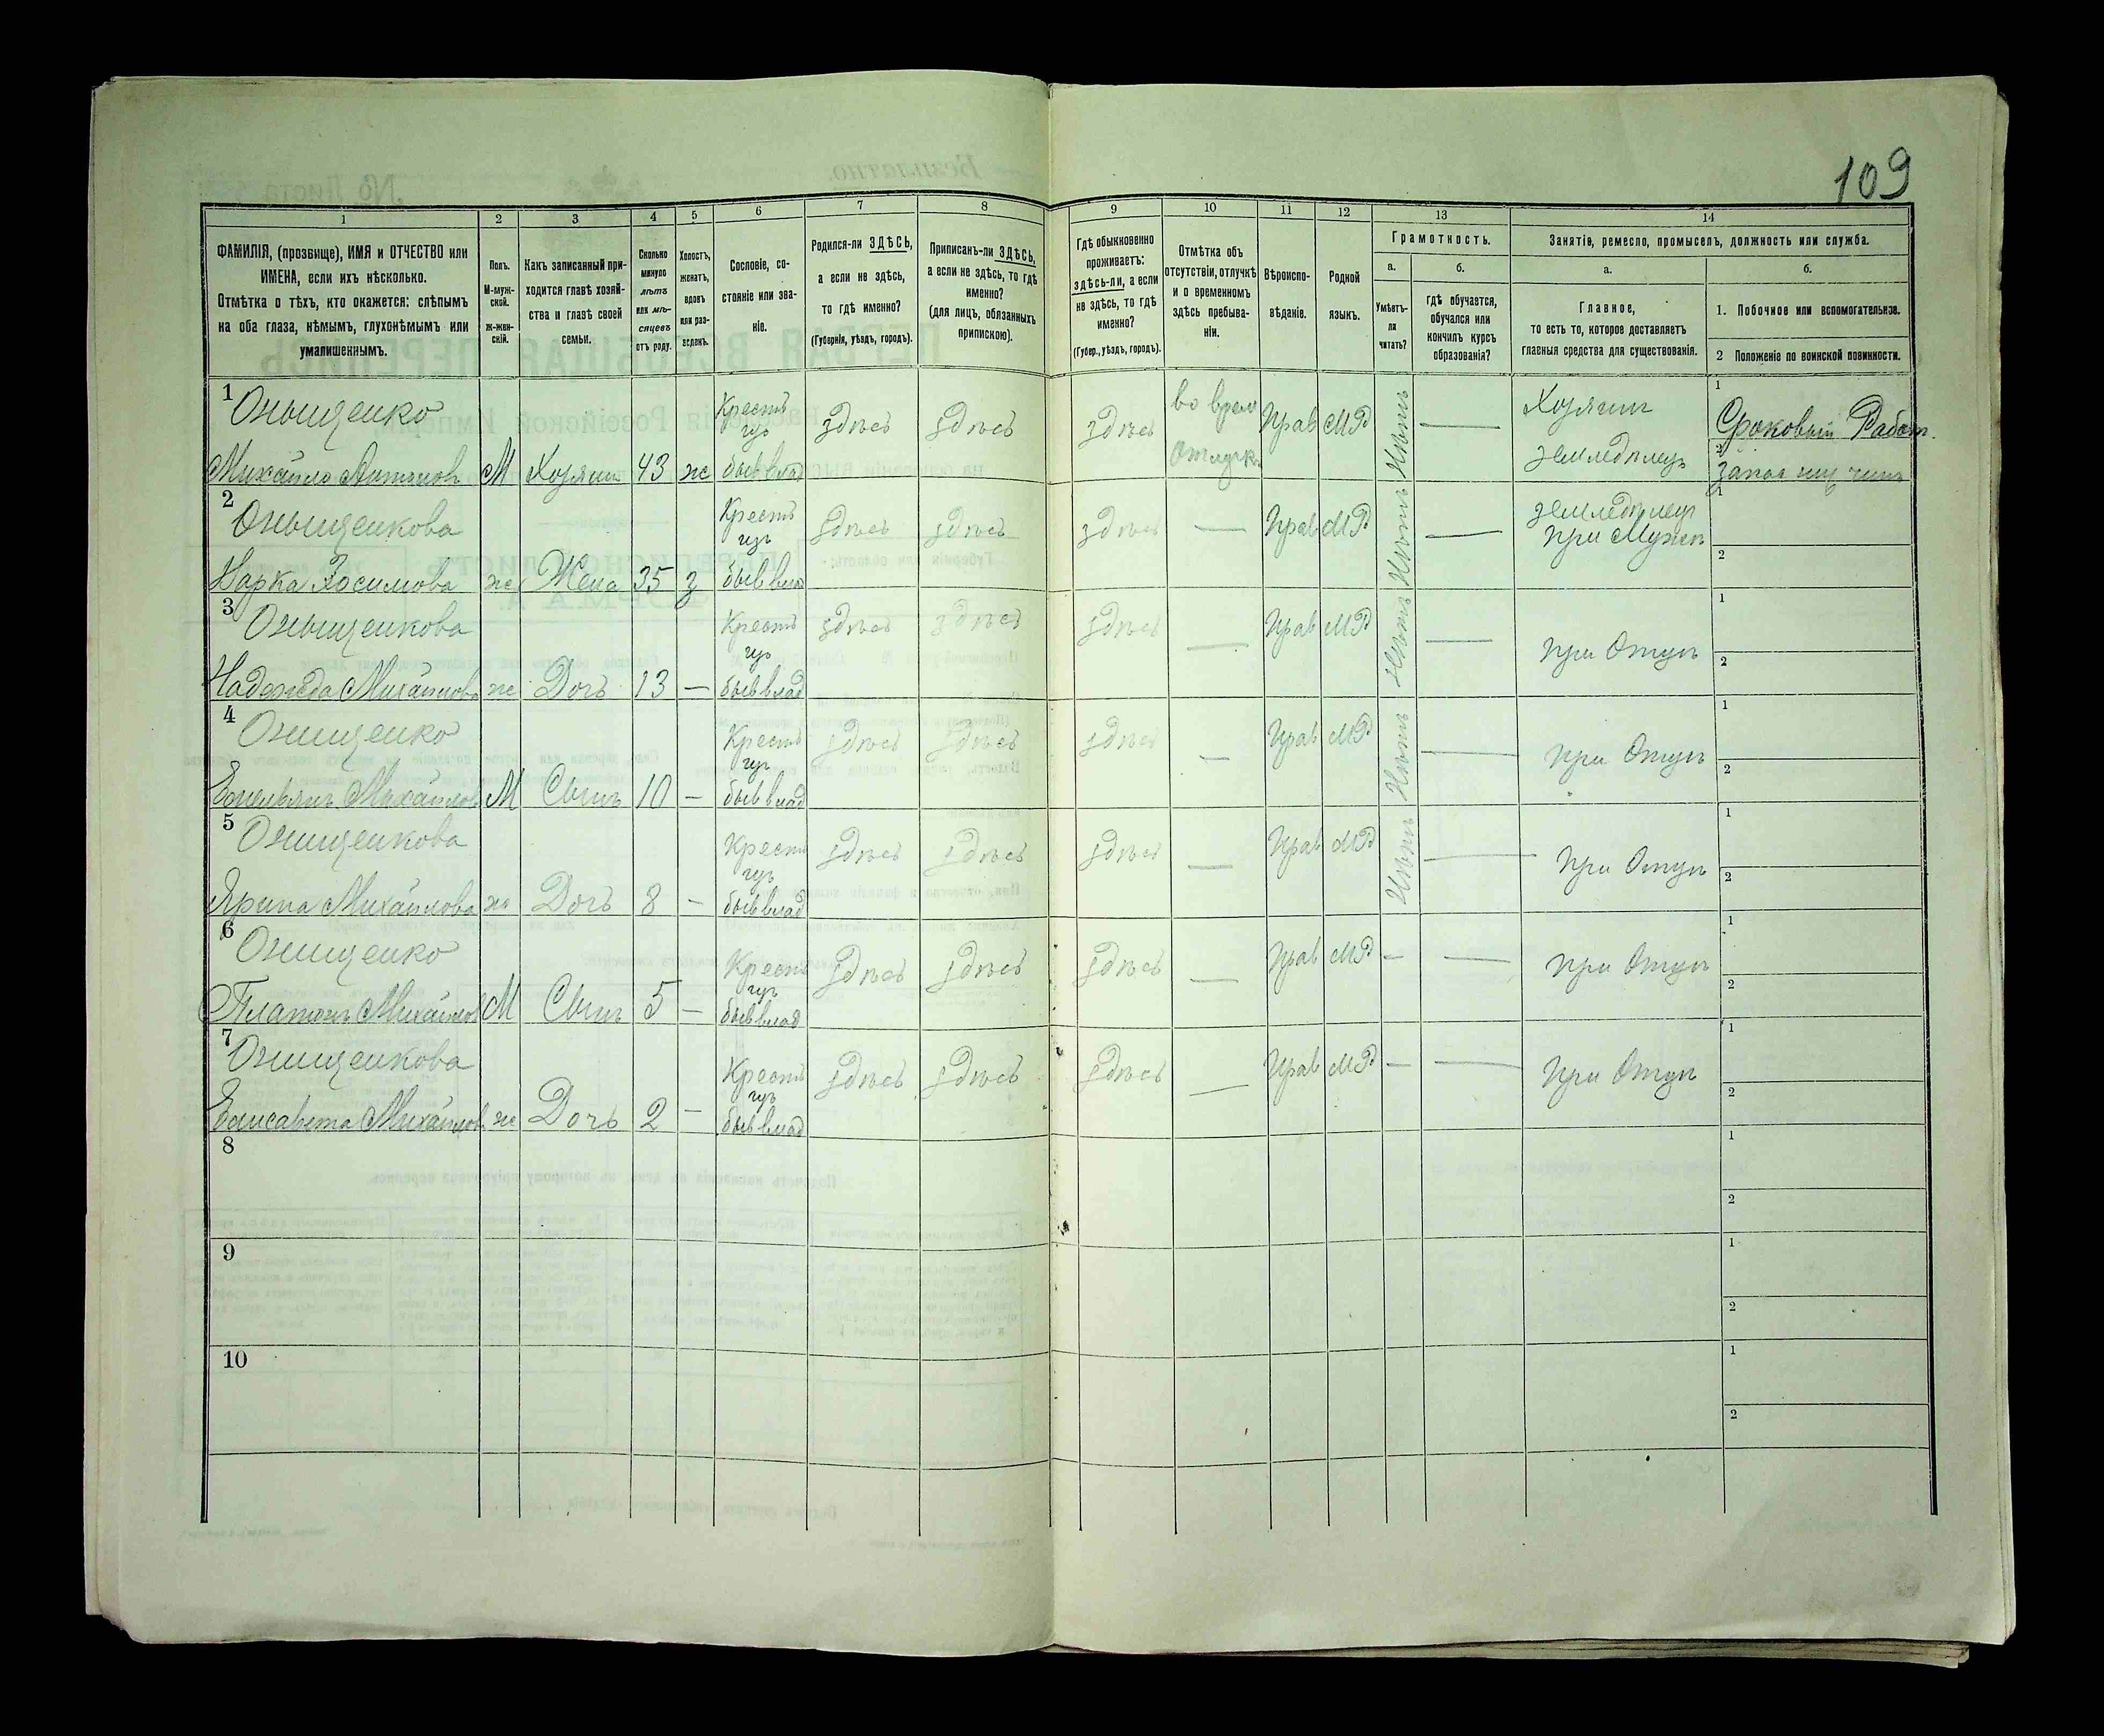 109
1 2 3 4 5 6 7 8 9 10 11 12 13 14
ФАМИЛІЯ, (прозвище), ИМЯ и ОТЧЕСТВО или
ИМЕНА, если ихъ нѣсколько.
Отмѣтка о тѣхъ, кто окажется: слѣпымъ
на оба глаза, нѣмымъ, глухонѣмымъ или
умалишеннымъ.
Полъ.
М-муж-
ской.
ж-жен-
скій.
Какъ записанный при-
ходится главѣ хозяй-
ства и главѣ своей
семьи.
Сколько
минуло
лѣтъ
или мѣ-
сяцевъ
отъ роду.
Холостъ,
женатъ,
вдовъ
или раз-
веденъ.
Сословіе, со-
стояніе или зва-
ніе.
Родился-ли ЗДѢСЬ,
а если не здѣсь,
то гдѣ именно?
(Губернія, уѣздъ, городъ).
Приписанъ-ли ЗДѢСЬ,
а если не здѣсь, то гдѣ
именно?
(для лицъ, обязанныхъ
припискою).
Гдѣ обыкновенно
проживаетъ:
здѣсь-ли, а если
не здѣсь, то гдѣ
именно?
(Губер., уѣздъ, городъ).
Отмѣтка объ
отсутствіи, отлучкѣ
и о временномъ
здѣсь пребыва-
ніи.
Вѣроиспо-
вѣданіе.
Родной
языкъ.
Грамотность.
а. б.
Умѣетъ-
ли
читать?
гдѣ обучается,
обучался или
кончилъ курсъ
образованія?
Занятіе, ремесло, промыселъ, должность или служба.
а. б.
Главное,
то есть то, которое доставляетъ
главныя средства для существованія.
1. Побочное или вспомогательное.
2 Положеніе по воинской повинности.
1 Онищенко Крестъ здѣсь здѣсь здѣсь во врем Прав МР Нѣтъ — Хозяин 1 Сроковый Работ.
Михайло Антоновъ М Хозяин 43 ж быв влад Отлучкѣ земледѣлец 2 Запас
2 Онищенкова Крестъ здѣсь здѣсь здѣсь — Прав МР Нѣтъ — земледѣлец 1
при Мужѣ
Зосимова ж Жена 35 з быв влад 2
3 Онищенкова Крестъ здѣсь здѣсь здѣсь — Прав МР Нѣтъ — при Отцѣ 1
Надежда Михайлова ж Дочь 13 — быв влад 2
4 Онищенко Крестъ здѣсь здѣсь здѣсь — Прав МР Нѣтъ — при Отцѣ 1
Емельянъ Михайловъ М Сынъ 10 — быв влад 2
5 Онищенкова Крестъ здѣсь здѣсь здѣсь — Прав МР Нѣтъ — при Отцѣ 1
Ярина Михайлова ж Дочь 8 — быв влад 2
6 Онищенко Крестъ здѣсь здѣсь здѣсь — Прав МР — — при Отцѣ 1
Платонъ Михайлов М Сынъ 5 — быв влад 2
7 Онищенкова Крестъ здѣсь здѣсь здѣсь — Прав МР — — при Отцѣ 1
Елисавета Михайлов ж Дочь 2 — быв влад 2
8 1
2
9 1
2
10 1
2